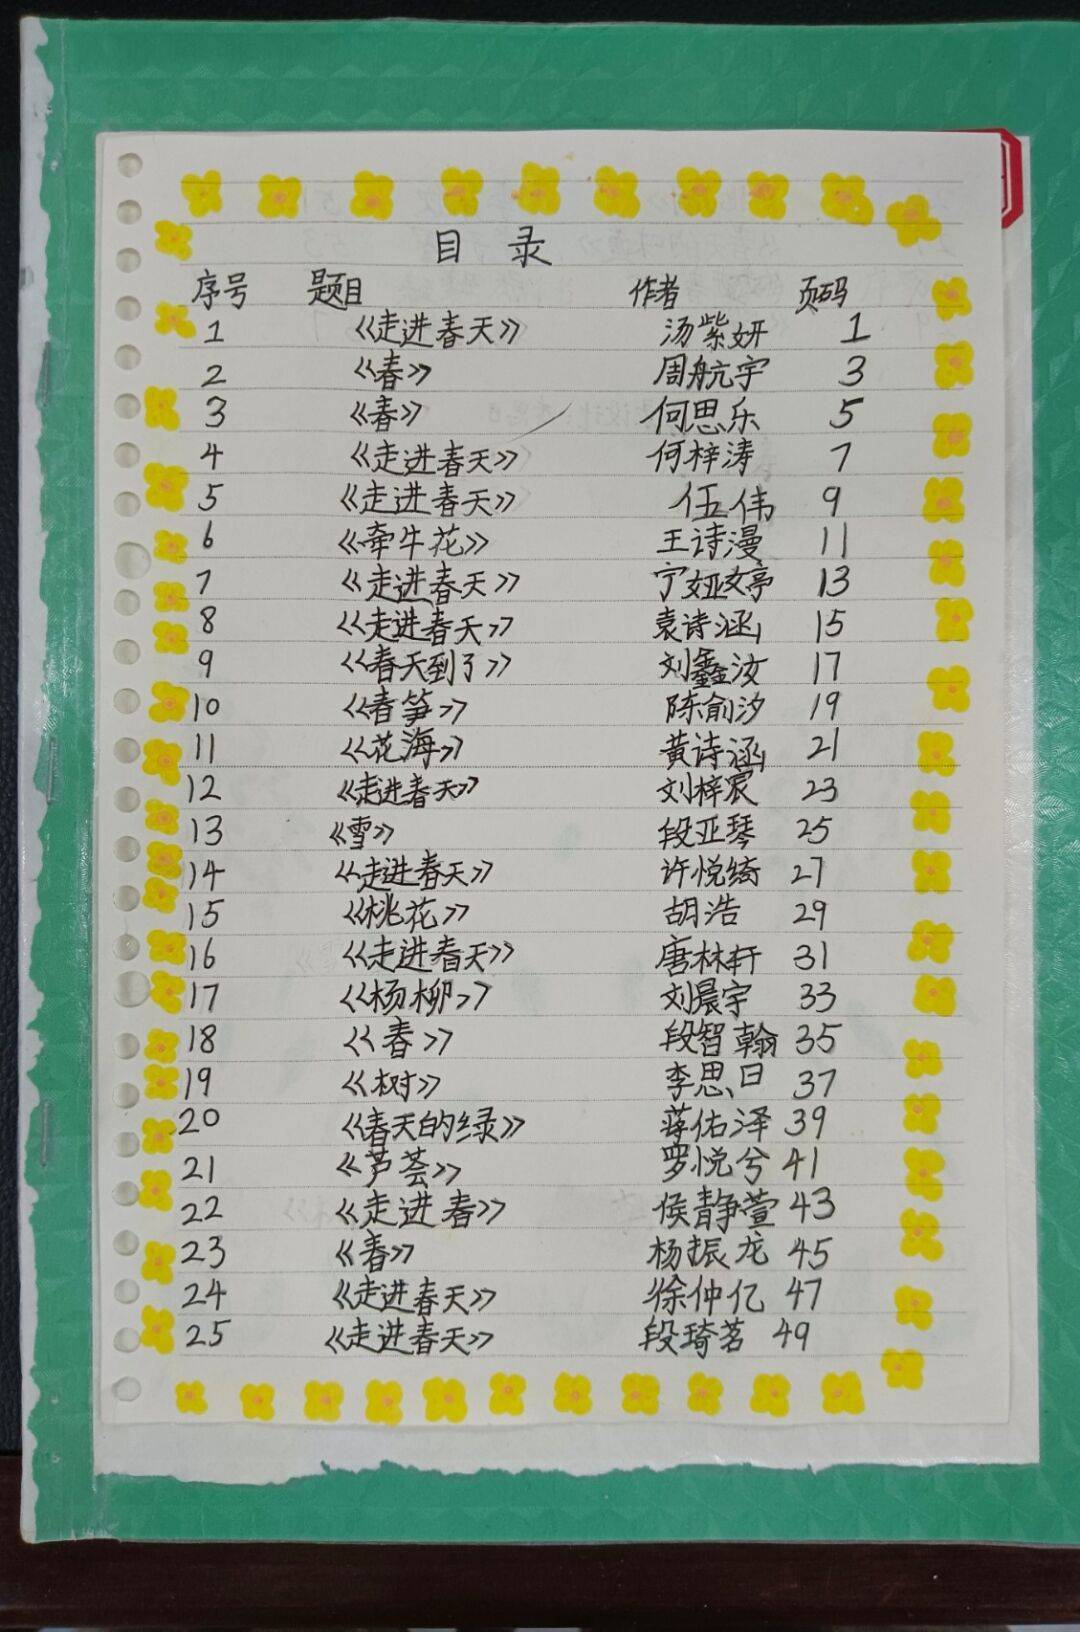 目 录
序号 题目 作者 页码
1 《走进春天》 汤紫妍 1
2 《春》 周航宇 3
3 《春》 何思乐 5
4 《走进春天》 何梓涛 7
5 《走进春天》 伍伟 9
6 《牵牛花》 王诗漫 11
7 《走进春天》 宁娅婷 13
8 《走进春天》 袁诗涵 15
9 《春天到了》 刘鑫汝 17
10 《春笋》 陈俞汐 19
11 《花海》 黄诗涵 21
12 《走进春天》 刘梓宸 23
13 《雪》 段亚琴 25
14 《走进春天》 许悦绮 27
15 《桃花》 胡浩 29
16 《走进春天》 唐林轩 31
17 《杨柳》 刘晨宇 33
18 《春》 段智翰 35
19 《树》 李思曰 37
20 《春天的绿》 蒋佑泽 39
21 《芦荟》 罗悦兮 41
22 《走进春》 侯静萱 43
23 《春》 杨振龙 45
24 《走进春天》 徐仲亿 47
25 《走进春天》 段琦茗 49